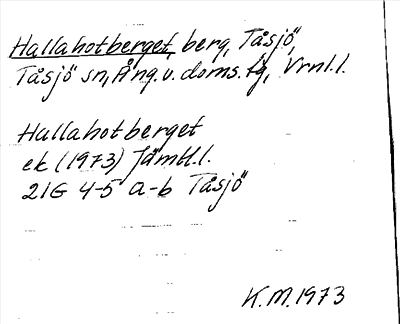 Hallahotberget, berg, Tåsjö,
Tåsjö sn, Ång. v. doms. fg, Vrnl. l.
Hallahotberget
ek (1973) Jämtl. l.
21G 4-5 a-b Tåsjö
K.M. 1973